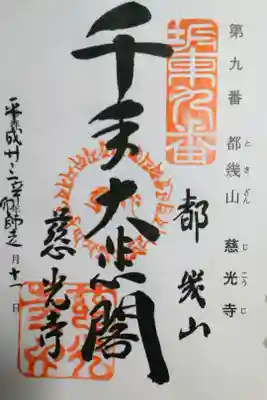 第九番 都幾山 慈光寺
ときざん じこうじ
坂東九番
都幾山
千手大悲閣
慈光寺
平成廿三 師走 月十一日